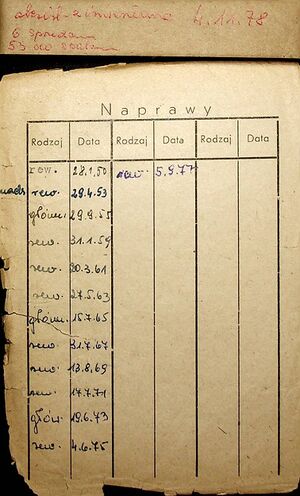 4.11.78
6
53
Naprawy
Rodzaj Data Rodzaj Data Rodzaj Data
rew. 28.1.50 rew. 5.9.77
rew. 29.4.53
główn. 29.9.55
rew. 31.1.59
rew. 20.3.61
rew. 27.5.63
główn. 15.7.65
rew. 31.7.67
rew. 13.8.69
rew. 17.7.71
główn. 19.6.73
rew. 4.6.75